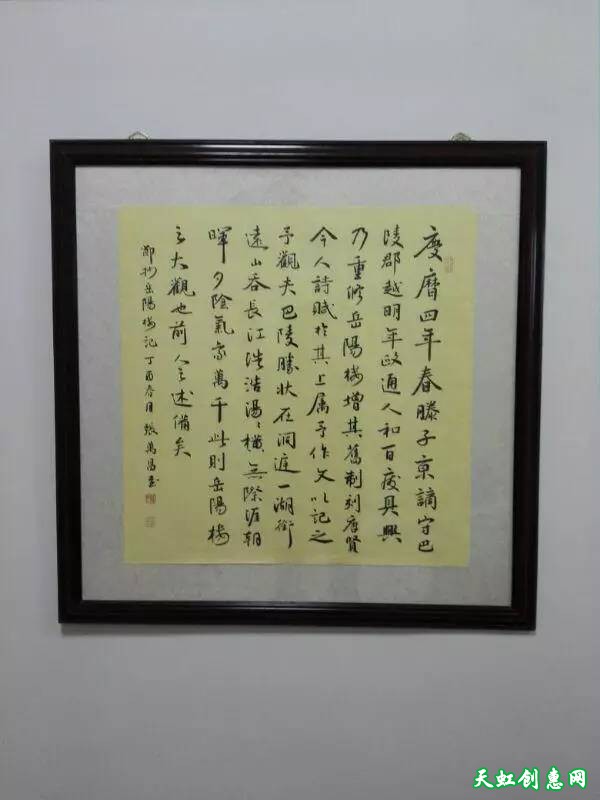 慶曆四年春滕子京謫守巴
陵郡越明年政通人和百廢具興
乃重修岳陽樓增其舊制刻唐賢
今人詩賦於其上属予作文以記之
予觀夫巴陵勝状在洞庭一湖銜
遠山吞長江浩浩湯湯橫無際涯朝
暉夕陰氣象萬千此則岳陽樓
之大觀也前人之述備矣
節抄岳陽樓記丁酉春月張萬昌書
天虹创惠网